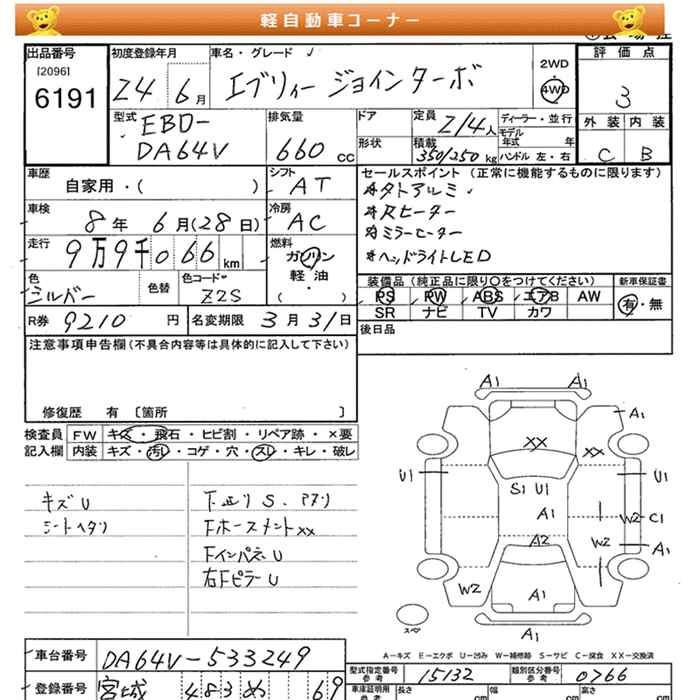 軽自動車コーナー
出品番号
[2096]
6191
初度登録年月
24 6月
車名・グレード
エブリィー ジョインターボ
2WD
4WD
評価点
3
型式
EBD-
DA64V
排気量
660 cc
ドア
形状
定員
2/4人
積載
350/250 kg
ディーラー・並行
モデル
年式 年
ハンドル 左・右
外装 内装
C B
車歴
自家用・( )
シフト
AT
車検
8年 6月(28日)
冷房
AC
走行
9万9千066km
燃料
ガソリン
軽油
( )
色
シルバー
色替
色コード
Z2S
セールスポイント(正常に機能するものに限ります)
*タトアルミ
*Rヒーター
*ミラーヒーター
*ヘッドライトLED
装備品(純正品に限り○をつけてください)
新車保証書
PS PW ABS エアB AW
SR ナビ TV カワ
有・無
R券 9210 円
名変期限 3月31日
後日品
注意事項申告欄(不具合内容等は具体的に記入して下さい)
修復歴 有 [箇所 ]
検査員
記入欄
FW キズ・飛石・ヒビ割・リペア跡・×要
内装 キズ・汚レ・コゲ・穴・スレ・キレ・破レ
キズU
シートヘタリ
下廻りS、
FホースメントXX
FインパネU
右FピラーU
A1 A1
A1
XX XX
U1 U1
S1 U1
A1
W2 C1
A2 W2 A1
W2 A1
A1
スペア
A-キズ E-エクボ U-凹み W-補修跡 S-サビ C-腐食 XX-交換済
車台番号 DA64V-533249
型式指定番号
参考
15132
類別区分番号
参考
0766
登録番号 宮城 483 め 69
車庫証明用
参考
長さ cm
幅 cm
高さ cm